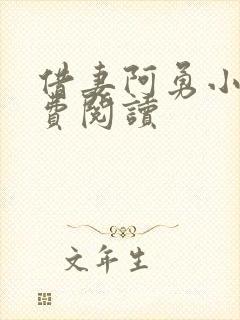 借妻阿勇小
費閱讀
文年生